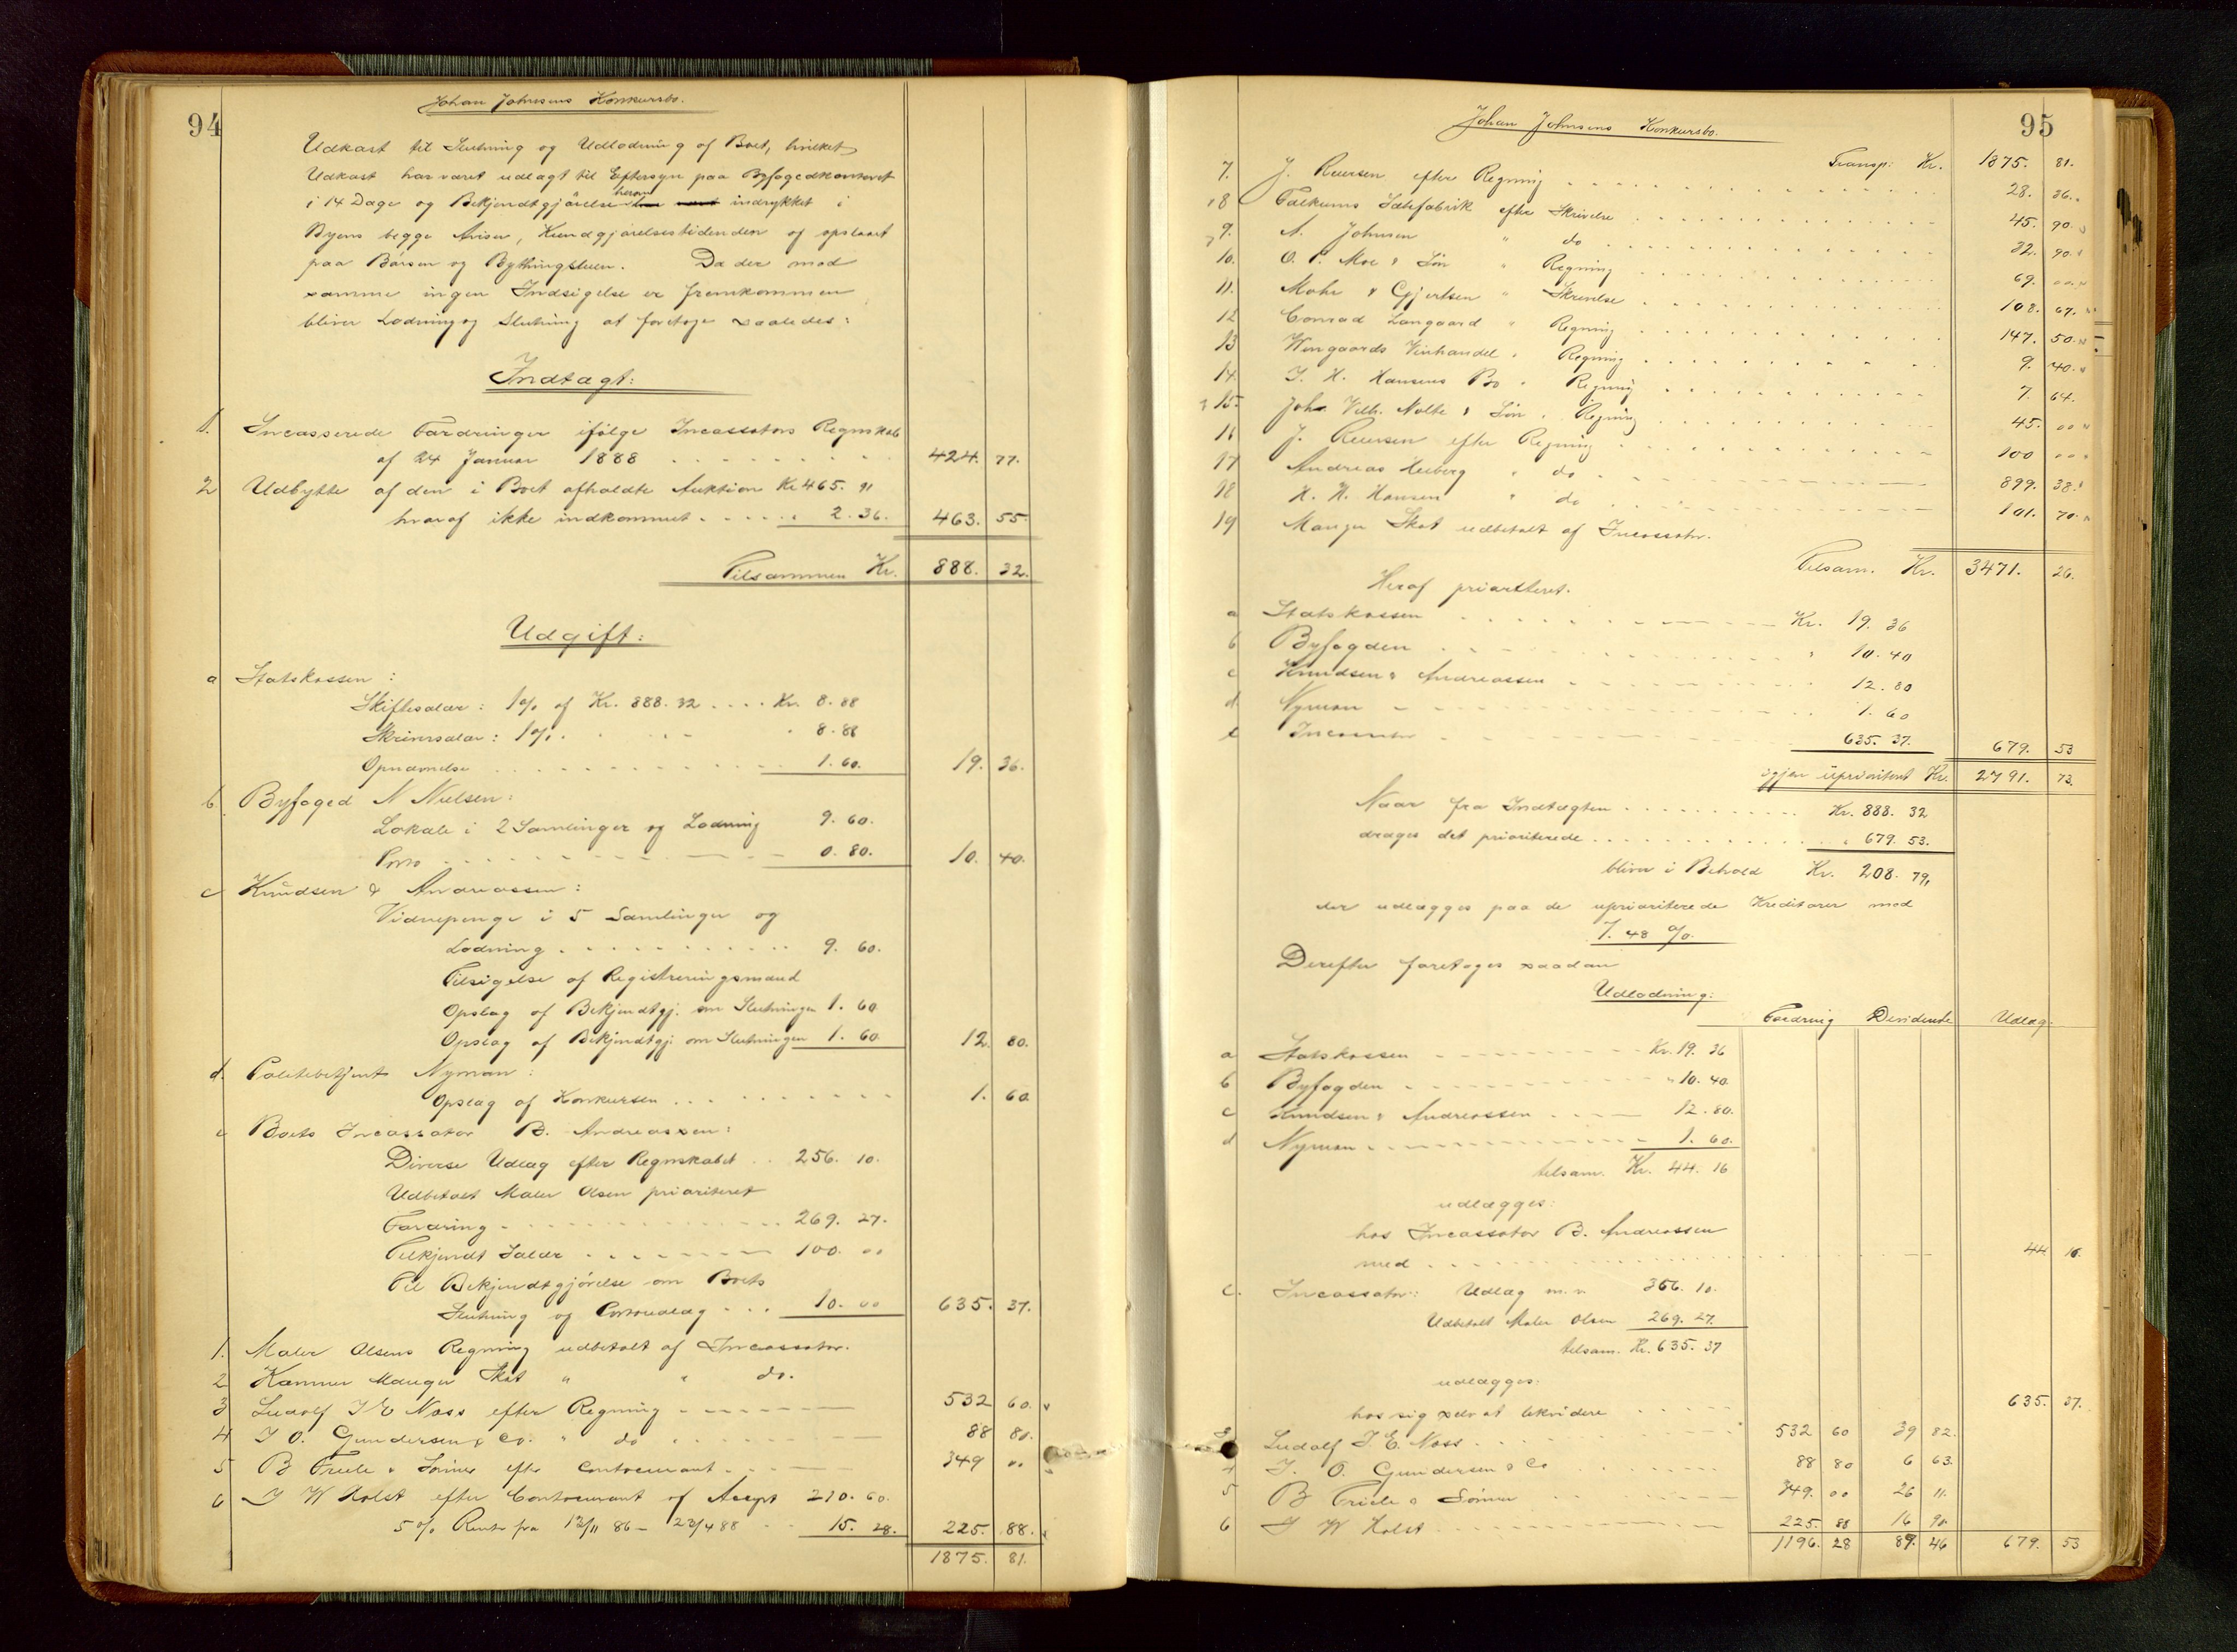 94
Johan Johnsens Konkursbo.
Udkast til Slutning og Udlodning af Boet, hvilket
Udkast har været udlagt til Eftersyn paa Byfogedkontoret
i 14 Dage og Bekjendtgjörelse herom indrykket i
Byens begge Aviser, Kundgjörelsestidenden og opslaaet
paa Börsen og Bythingstuen. Da der mod
samme ingen Indsigelse er fremkommen
bliver Lodning og Slutning at foretage saaledes:
Indtægt:
1. Incasserede Fordringer ifölge Incassators Regnskab
af 24 Januar 1888 424. 77.
2 Udbytte af den i Boet afholdte Auktion Kr 465. 91
hvoraf ikke indkommet 2. 36. 463. 55.
Tilsammen Kr. 888. 32.
Udgift:
a Statskassen:
Skiftesalær: 1% af Kr. 888. 32 Kr. 8. 88
Skriversalær: 1%. 8. 88
Opnævnelse 1. 60. 19. 36.
b. Byfoged N Nielsen:
Lokale i 2 Samlinger og Lodning 9. 60.
Porto 0. 80. 10. 40.
c Knudsen & Andreassen:
Vidnepenge i 5 Samlinger og
Lodning 9. 60.
Tilsigelse af Registreringsmænd
Opslag af Bekjendtgj. om Slutningen 1. 60
Opslag af Bekjendtgj. om Slutningen 1. 60 12. 80.
d. Politibetjent Nyman:
Opslag af Konkursen 1. 60
e Boets Incassator B. Andreassen:
Diverse Udlæg efter Regnskabet 256. 10.
Udbetalt Maler Olsen prioriteret
Fordring 269. 27.
Tilkjendt Salær 100. 00
Til Bekjendtgjörelse om Boets
Slutning og Portoudlæg 10. 00 635. 37.
1. Maler Olsens Regning udbetalt af Incassator.
2 Kæmner Manger Skat " " do.
3 Ludolf J E Nass efter Regning 532 60.
4 J O. Gundersen & Co. " do 88 80.
5 B Friele & Sönner efter Contocurant 349 00
6 J W Holst efter Contocurant af Accept 210. 60.
5% Rente fra 12/11 86 - 23/4 88 15. 28. 225. 88.
1875. 81.
95
Johan Johnsens Konkursbo.
Transp: Kr. 1875. 81.
7. J. Reuersen efter Regning 28. 36.
8 Falkums Sæbefabrik efter Skrivelse 45. 90.
9. A. Johnsen " do 32. 90.
10. O. P. Moe & Sön " Regning 69. 00.
11. Mohr & Gjertsen " Skrivelse 108. 67.
12 Conrad Langaard " Regning 147. 50.
13 Wingaards Vinhandel " Regning 9. 40.
14. J. H. Hansens Bo " Regning 7. 64.
15. Joh. Vilh. Nolte & Sön " Regning 45. 00
16 J. Reuersen efter Regning 100 00
17 Andreas Heiberg " do 899. 38.
18 H. H. Hansen " do 101. 70.
19 Manger Skat udbetalt af Incassator.
Tilsam. Kr. 3471. 26.
Heraf prioriteret.
a Statskassen Kr. 19. 36
b Byfogden " 10. 40
c Knudsen & Andreassen 12. 80
d Nyman 1. 60
e Incassator 635. 37. 679. 53
igjen uprioriteret Kr. 2791. 73.
Naar fra Indtægten Kr. 888. 32
drages det prioriterede 679. 53.
bliver i Behold Kr. 208. 79,
der udlægges paa de uprioriterede Kreditorer med
7. 48 %.
Derefter foretages saadan
Udlodning:
Fordring Dividende Udlæg.
a Statskassen Kr. 19. 36
b Byfogden " 10. 40.
c Knudsen & Andreassen 12. 80.
d Nyman 1. 60.
tilsam. Kr. 44. 16
udlægges:
hos Incassator B. Andreassen
med 44. 16.
e. Incassator: Udlæg m. v. 366. 10.
Udbetalt Maler Olsen 269. 27.
tilsam. Kr. 635. 37
udlægges:
hos sig selv at likvidere 635. 37.
3 Ludolf J. E. Nass 532 60 39 82.
4 J. O. Gundersen & Co 88 80 6 63.
5 B Friele & Sönner 349. 00 26 11.
6 J W Holst 225. 88 16 90.
1196. 28 89. 46 679. 53